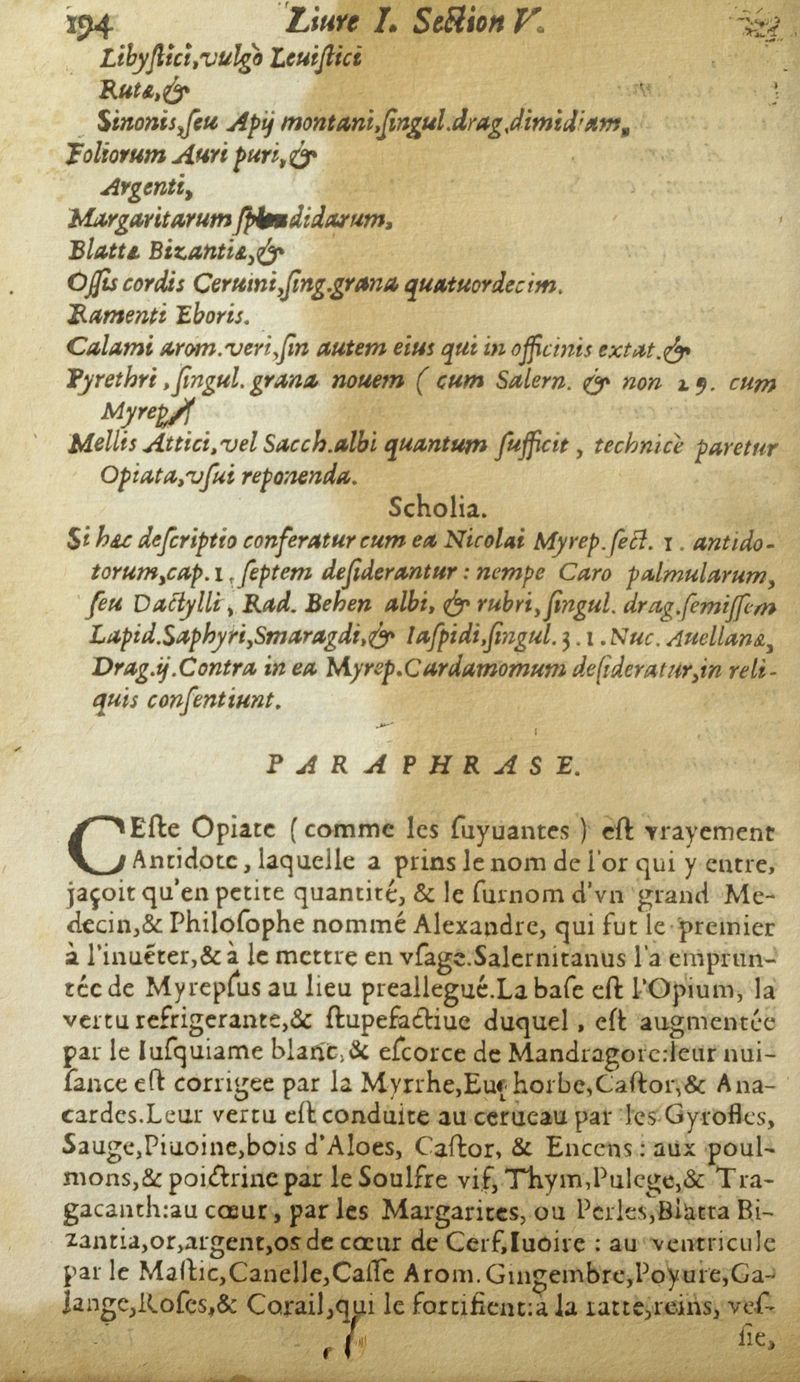 194 Liure I. Section V.
Libyſtici,vulgò Leuiſtici
Rutæ,&
Sinonis,ſeu Apij montani,ſingul.drag,dimidiam,
Foliorum Auri puri,&
Argenti,
Margaritarum ſplendidarum,
Blattæ Bizantiæ,&
Oſſis cordis Ceruini,ſing.grana quatuordecim.
Ramenti Eboris.
Calami arom.veri,ſin autem eius qui in officinis extat.&
Pyrethri,ſingul. grana nouem ( cum Salern. & non 29. cum
Myrepſ
Mellis Attici,vel Sacch.albi quantum ſufficit, technicè paretur
Opiata,vſui reponenda.
Scholia.
Si hæc deſcriptio conferatur cum ea Nicolai Myrep.ſect. 1. antido-
torum,cap.1, ſeptem deſiderantur : nempe Caro palmularum,
ſeu Dactylli, Rad. Behen albi, & rubri, ſingul. drag.ſemiſſem
Lapid.Saphyri,Smaragdi,& Iaſpidi,ſingul.з.1.Nuc.Auellanæ,
Drag.ij.Contra in ea Myrep.Cardamomum deſideratur,in reli-
quis conſentiunt.
PARAPHRASE.
CEſte Opiate ( comme les ſuyuantes ) eſt vrayement
Antidote, laquelle a prins le nom de l'or qui y entre,
jaçoit qu'en petite quantité, & le ſurnom d'vn grand Me-
decin,& Philoſophe nommé Alexandre, qui fut le premier
à l'inuẽter,& à le mettre en vſage.Salernitanus l'a emprun-
tée de Myrepſus au lieu preallegué.La baſe eſt l'Opium, la
vertu refrigerante,& ſtupefactiue duquel, eſt augmentée
par le Iuſquiame blanc,& eſcorce de Mandragore:leur nui-
ſance eſt corrigee par la Myrrhe,Euphorbe,Caſtor,& Ana-
cardes.Leur vertu eſt conduite au cerueau par les Gyrofles,
Sauge,Piuoine,bois d'Aloes, Caſtor, & Encens : aux poul-
mons,& poictrine par le Soulfre vif, Thym,Pulege,& Tra-
gacanth:au cœur, par les Margarites, ou Perles,Blatta Bi-
zantia,or,argent,os de cœur de Cerf,Iuoire : au ventricule
par le Maſtic,Canelle,Caſſe Arom.Gingembre,Poyure,Ga-
lange,Roſes,& Corail,qui le fortifient:à la ratte,reins, veſ-
ſie,